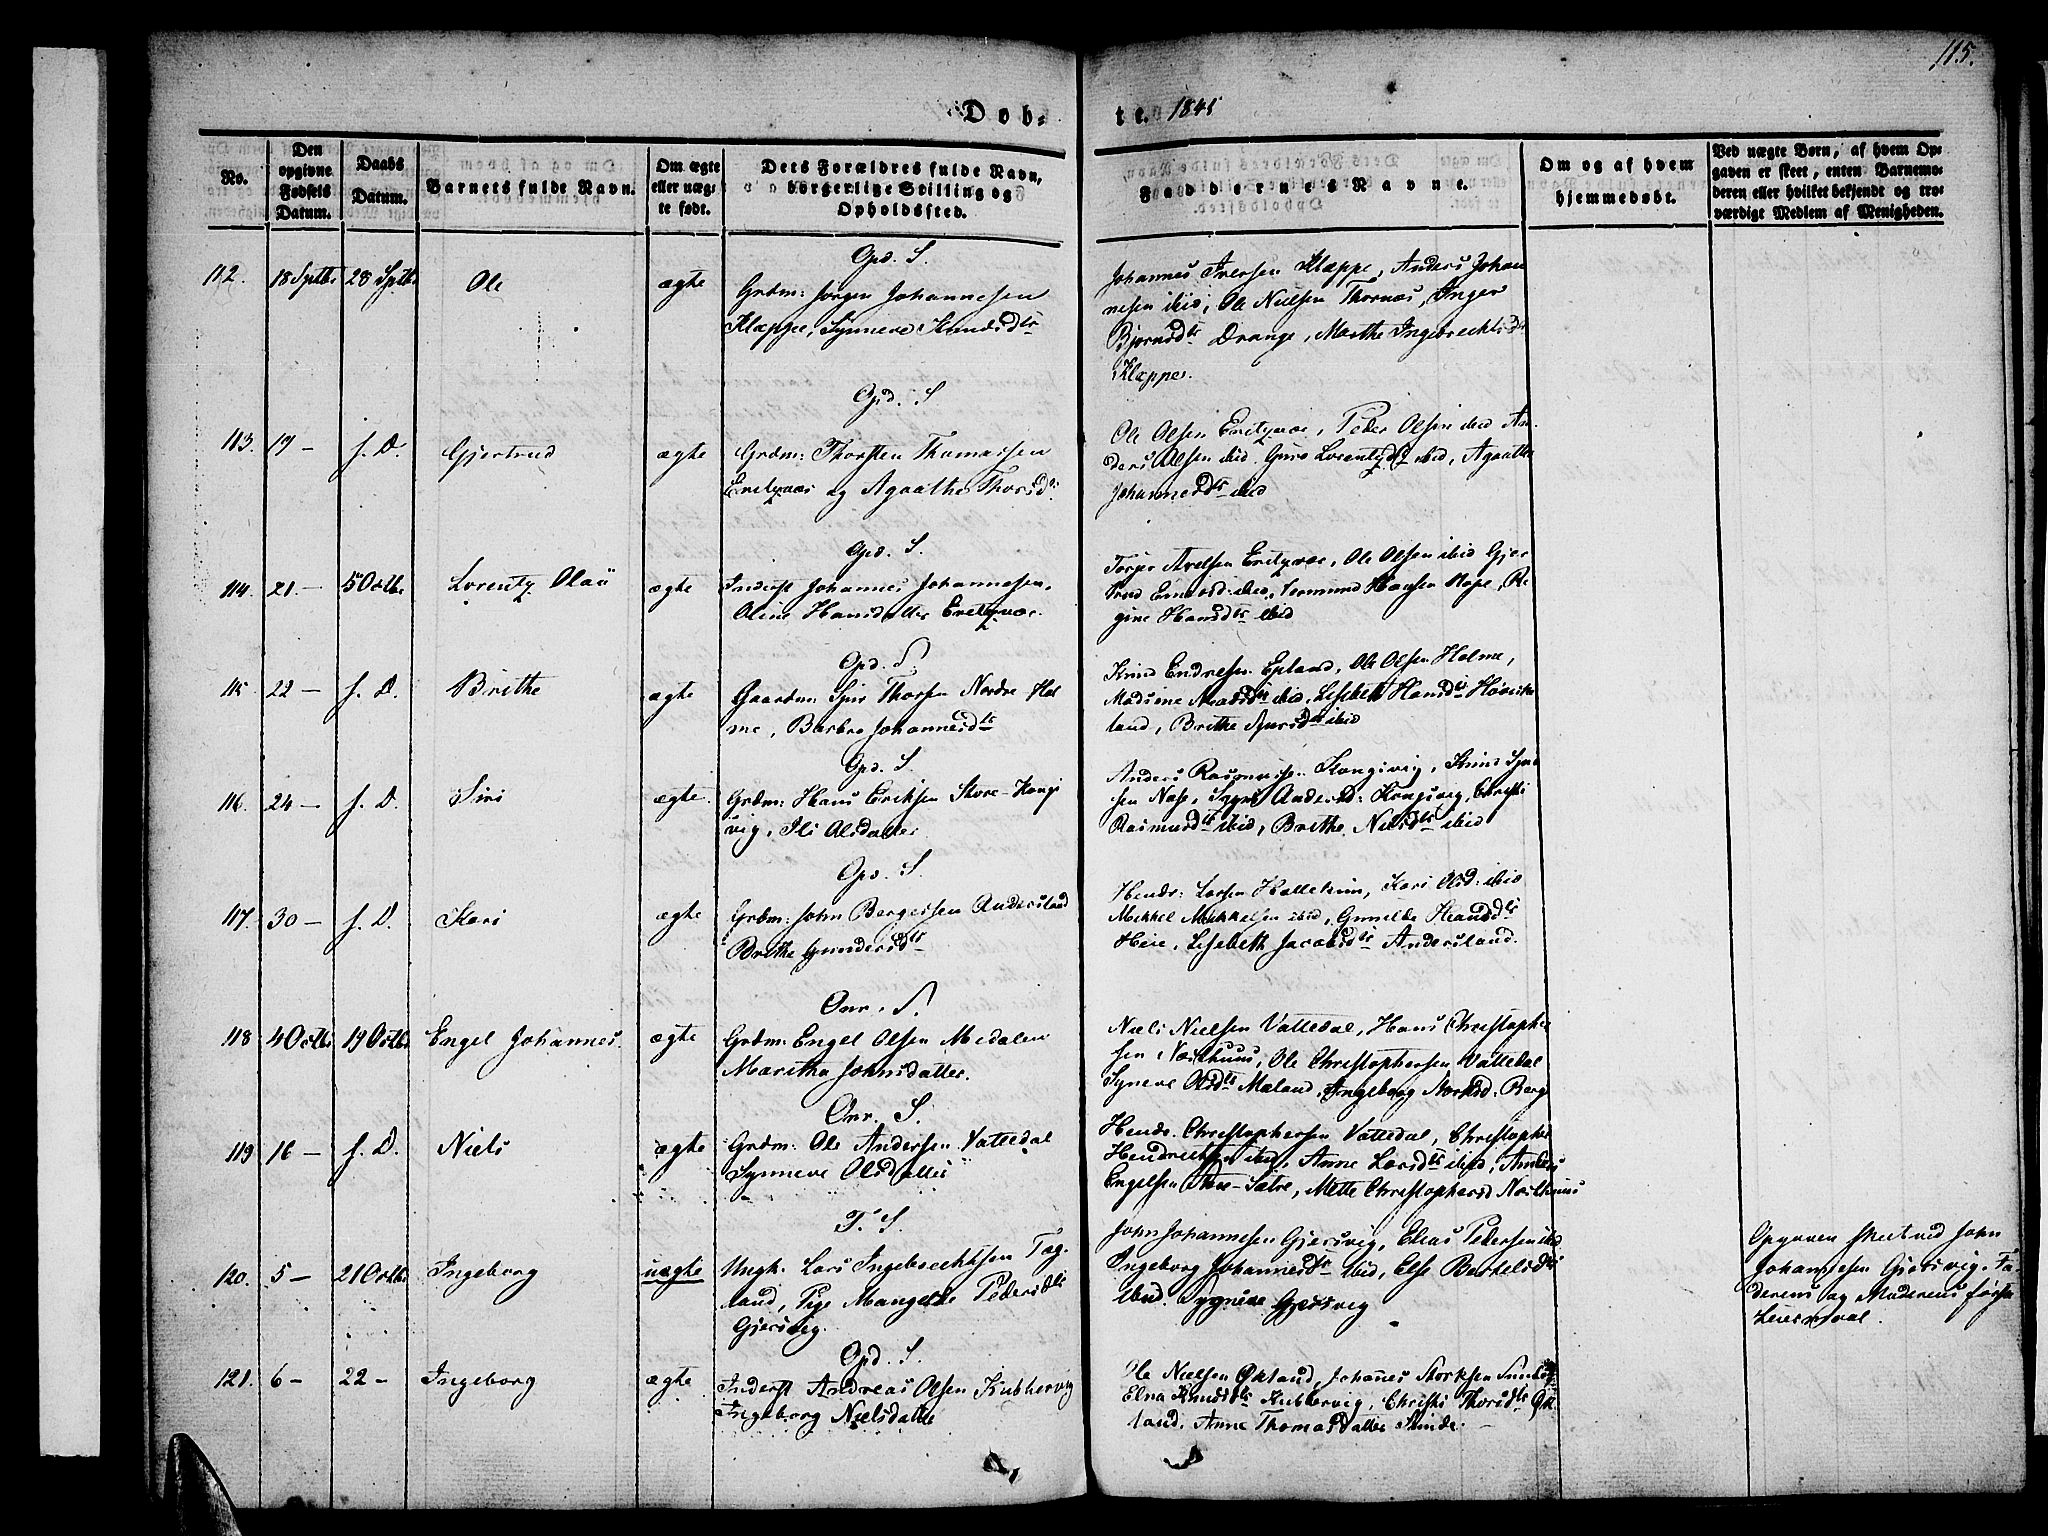 115.
Døb-
te. 1845
No.
Den
opgivne
Fødsels
Datum.
Daabs
Datum.
Barnets fulde Navn.
Om ægte
eller uæg-
te født.
Dets Forældres fulde Navn,
borgerlige Stilling og
Opholdssted.
Faddernes Navne.
Om og af hvem
hjemmedøbt.
Ved uægte Børn, af hvem Op-
gaven er skeet, enten Barnemo-
deren eller hvilket bekjendt og tro-
værdigt Medlem af Menigheden.
Opd. S.
112. 18 Septbr 28 Septbr Ole ægte
Grdm: Jørgen Johannesen
Klæppe, Synneve Knudsdtr
Johannes Iversen Klæppe, Anders Johan
nesen ibid, Ole Nielsen Thornæs, Inger
Bjørnsdtr Drange, Marthe Ingebrechtsd
Klæppe.
Opd. S
113. 19 – f. D. Gjertrud ægte
Grdm: Thorsten Thomassen
Enetzvær og Agathe Thorsdtr
Ole Olsen Enetzvær, Peder Olsen ibid An-
ders Olsen ibid. Guro Lorentzd ibid, Agathe
Johannesdtr ibid
Opd. S.
114. 21 – 5 Octbr Lorentz Olai ægte
Inderst Johannes Johannesen,
Oline Hansdatter Enetzvær.
Torger Axelsen Enetzvær, Ole Olsen ibid Gjer
trud ibid, Hansen Rope, Re
gine Hansdtr ibid
Opd. S.
115. 22 – f. D. Brithe ægte
Gaardm: Sjur Thorsen Nordre Hol
me, Barbro Johannesdtr
Knud Endresen Epland, Ole Olsen Holme,
Madsine Madsdtr ibid, Lisebeth Hansdtr Høvik
land, Brithe Sjursdtr ibid
Opd. S.
116. 24 – f. D. Siri ægte.
Grdm: Hans Eriksen Store-Kongs
vig, Ili Olsdatter
Anders Rasmussen Kongsvig, Knud Sjur
sen Næse, Sygni Andersd: Kongsvig, Christi
Rasmusdtr ibid, Brithe Nielsdtr ibid
Opd. S.
117. 30 – f. D. Kari ægte
Grdm: John Bergesen Andersland
Brithe Gundersdtr
Hendr: Larsen Hallekim, Kari Olsd: ibid
Mikkel Mikkelsen ibid, Gunilde Hansdtr
Heie, Lisebeth Jacobsdtr Andersland.
Onr. S.
118 4 Octbr 19 Octbr Engel Johannes. ægte
Grdm: Engel Olsen Medalen
Maritha Johnsdatter.
Niels Nielsen Vattedal, Hans Christophe
sen Næsthuus, Ole Christophersen Vattedal
Syneve Olsdtr Maland, Ingeborg Berg
Onr. S.
119 16 – f. D. Niels ægte
Grdm: Ole Andersen Vattedal
Synneve Olsdatter
Hendr. Christophersen Vattedal, Christophe
Hendricksen ibid, Anne Larsdtr ibid, Anders
Engelsen Sætre, Mette Christophersd Næsthuus
T. S.
120. 5 – 21 Octbr Ingeborg uægte
Ungk. Lars Ingebrechtsen Tæg-
land, Pige Mangelde Pedersdtr
Gjersvig.
John Johannesen Gjersvig, Elias Pedersen ibid
Ingeborg Johannesdtr ibid, Else Bertelsdtr
ibid. Sygnive Gjersvig
Opgaven skeet ved John
Johannesen Gjersvig. Fa-
derens og Moderens første
Leiermaal.
Opd. S.
121. 6 – 22 – Ingeborg ægte
Inderst Andreas Olsen Kubbervig
Ingeborg Nielsdatter
Ole Nielsen Økland, Johanes Storksen
Elna Knudsdtr Kubbervig, Christi Thorsdtr Øk
land, Anne Thomasdatter Skinde.